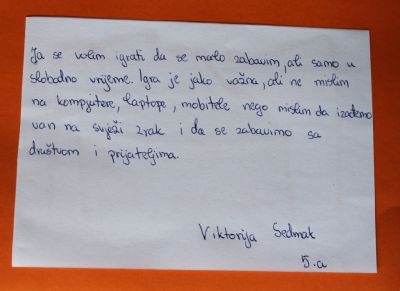 Ja se volim igrati da se malo zabavim, ali samo u
slobodno vrijeme. Igra je jako važna, ali ne mislim
na kompjutere, laptope, mobitele nego mislim da izađemo
van na svježi zrak i da se zabavimo sa
društvom i prijateljima.
Viktorija Sedmak
5.a